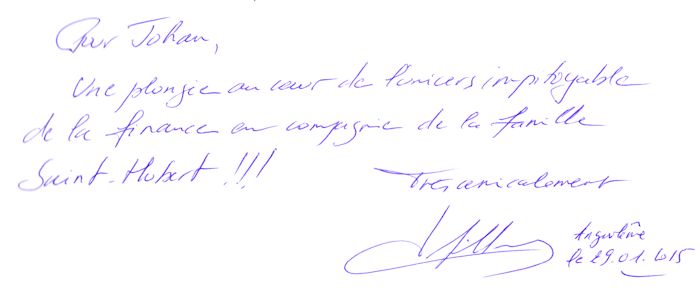 Pour Johan,
Une plongée au cœur de l'univers impitoyable
de la finance en compagnie de la famille
Saint-Hubert !!!
Très amicalement
Angoulême
le 29.01.2015